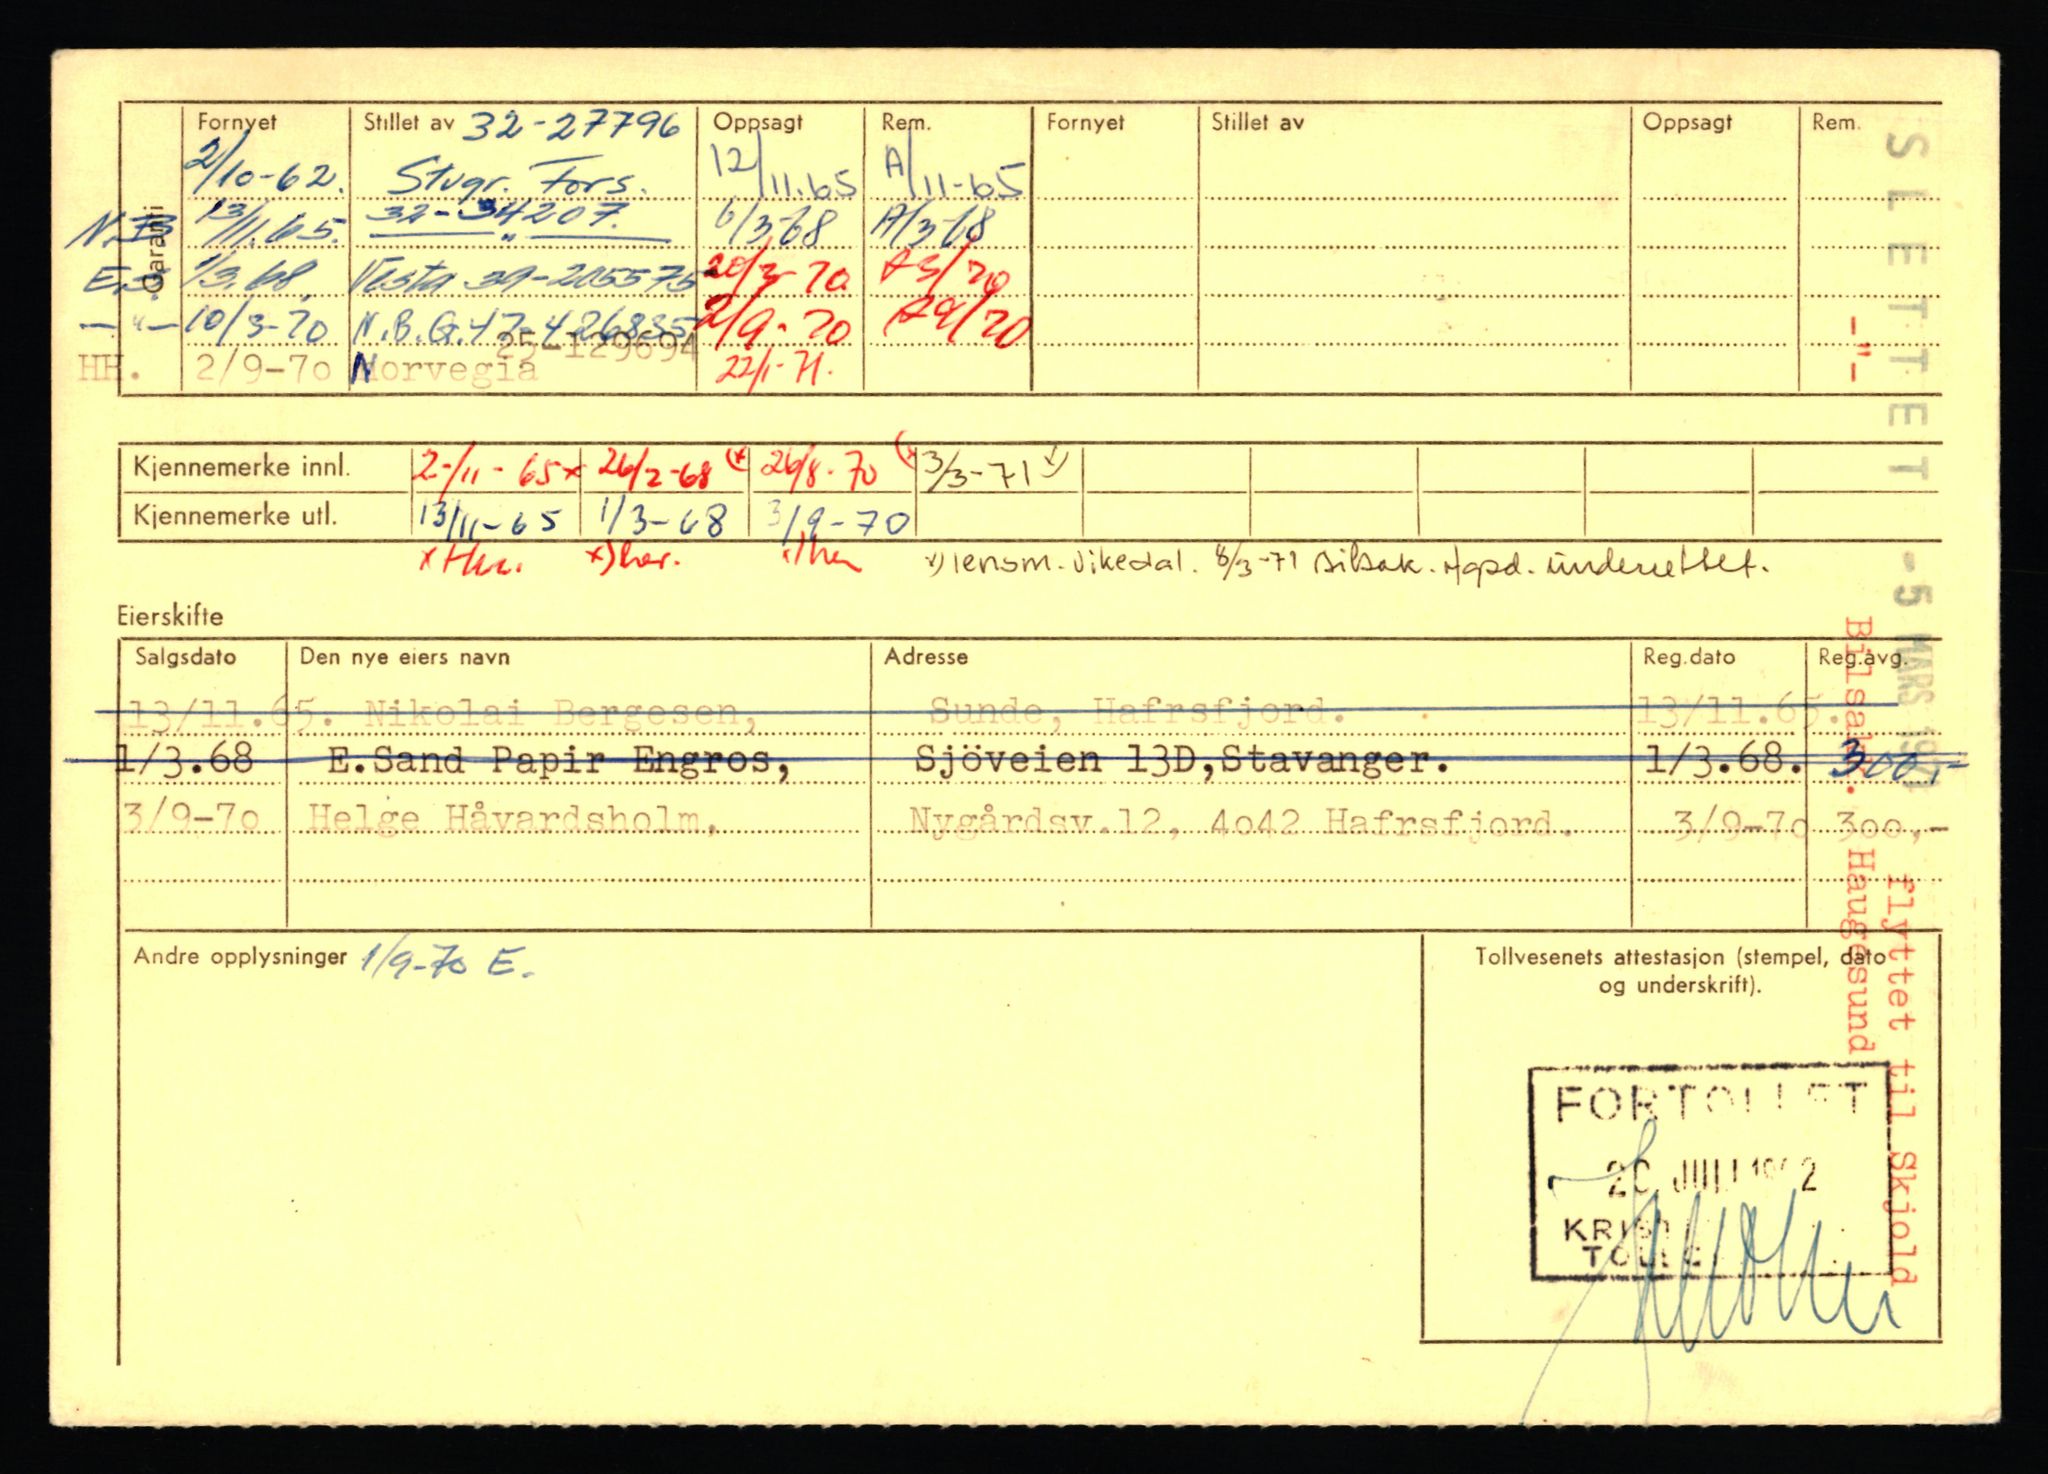 Garanti
Fornyet Stillet av 32-27796 Oppsagt Rem. Fornyet Stillet av Oppsagt Rem.
2/10-62. Stvgr. Fors. 12/11.65 A/11-65
N.B 13/11.65. 32-34207. 6/3-68 A/3-68
E.B. 1/3.68. Vesta 39-205575 20/3-70 A3/70
—"— 10/3-70 N.B.G. 47-426835 2/9-70 A9/70
25-129694
HH. 2/9-70 Norvegia 22/1-71.
Kjennemerke innl. 2-/11-65 x 26/2-68 x) 26/8-70 3/3-71 x)
Kjennemerke utl. 13/11-65 1/3-68 3/9-70
x) lensm. Vikedal. 8/3-71 underrettet.
Eierskifte
Salgsdato Den nye eiers navn Adresse Reg.dato Reg.avg.
13/11.65. Nikolai Bergesen, Sunde, Hafrsfjord. 13/11.65.
1/3.68 E.Sand Papir Engros, Sjöveien 13D,Stavanger. 1/3.68. 300,-
3/9-70 Helge Håvardsholm, Nygårdsv.12, 4042 Hafrsfjord. 3/9-70 300,-
Andre opplysninger 1/9-70 E.
Tollvesenets attestasjon (stempel, dato
og underskrift).
FORTOLLET
SLETTET -5 MARS 1971
-"- flyttet til Skjold
Bilsakk. Haugesund